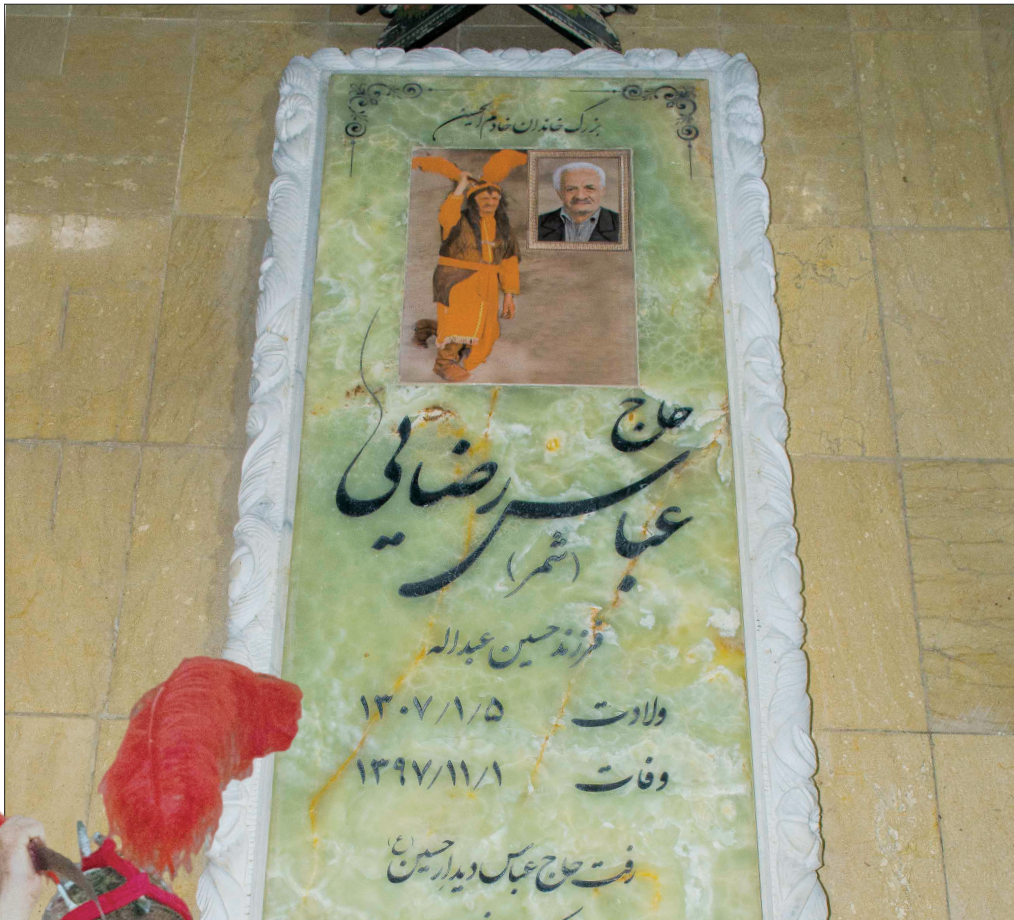 بزرگ خاندان خادم الحسین
حاج
عباس رضایی
(شمر)
فرزند حسین عبداله
ولادت ۱۳۰۷/۱/۵
وفات ۱۳۹۷/۱۱/۱
رفت حاج عباس دیدار حسین (ع)